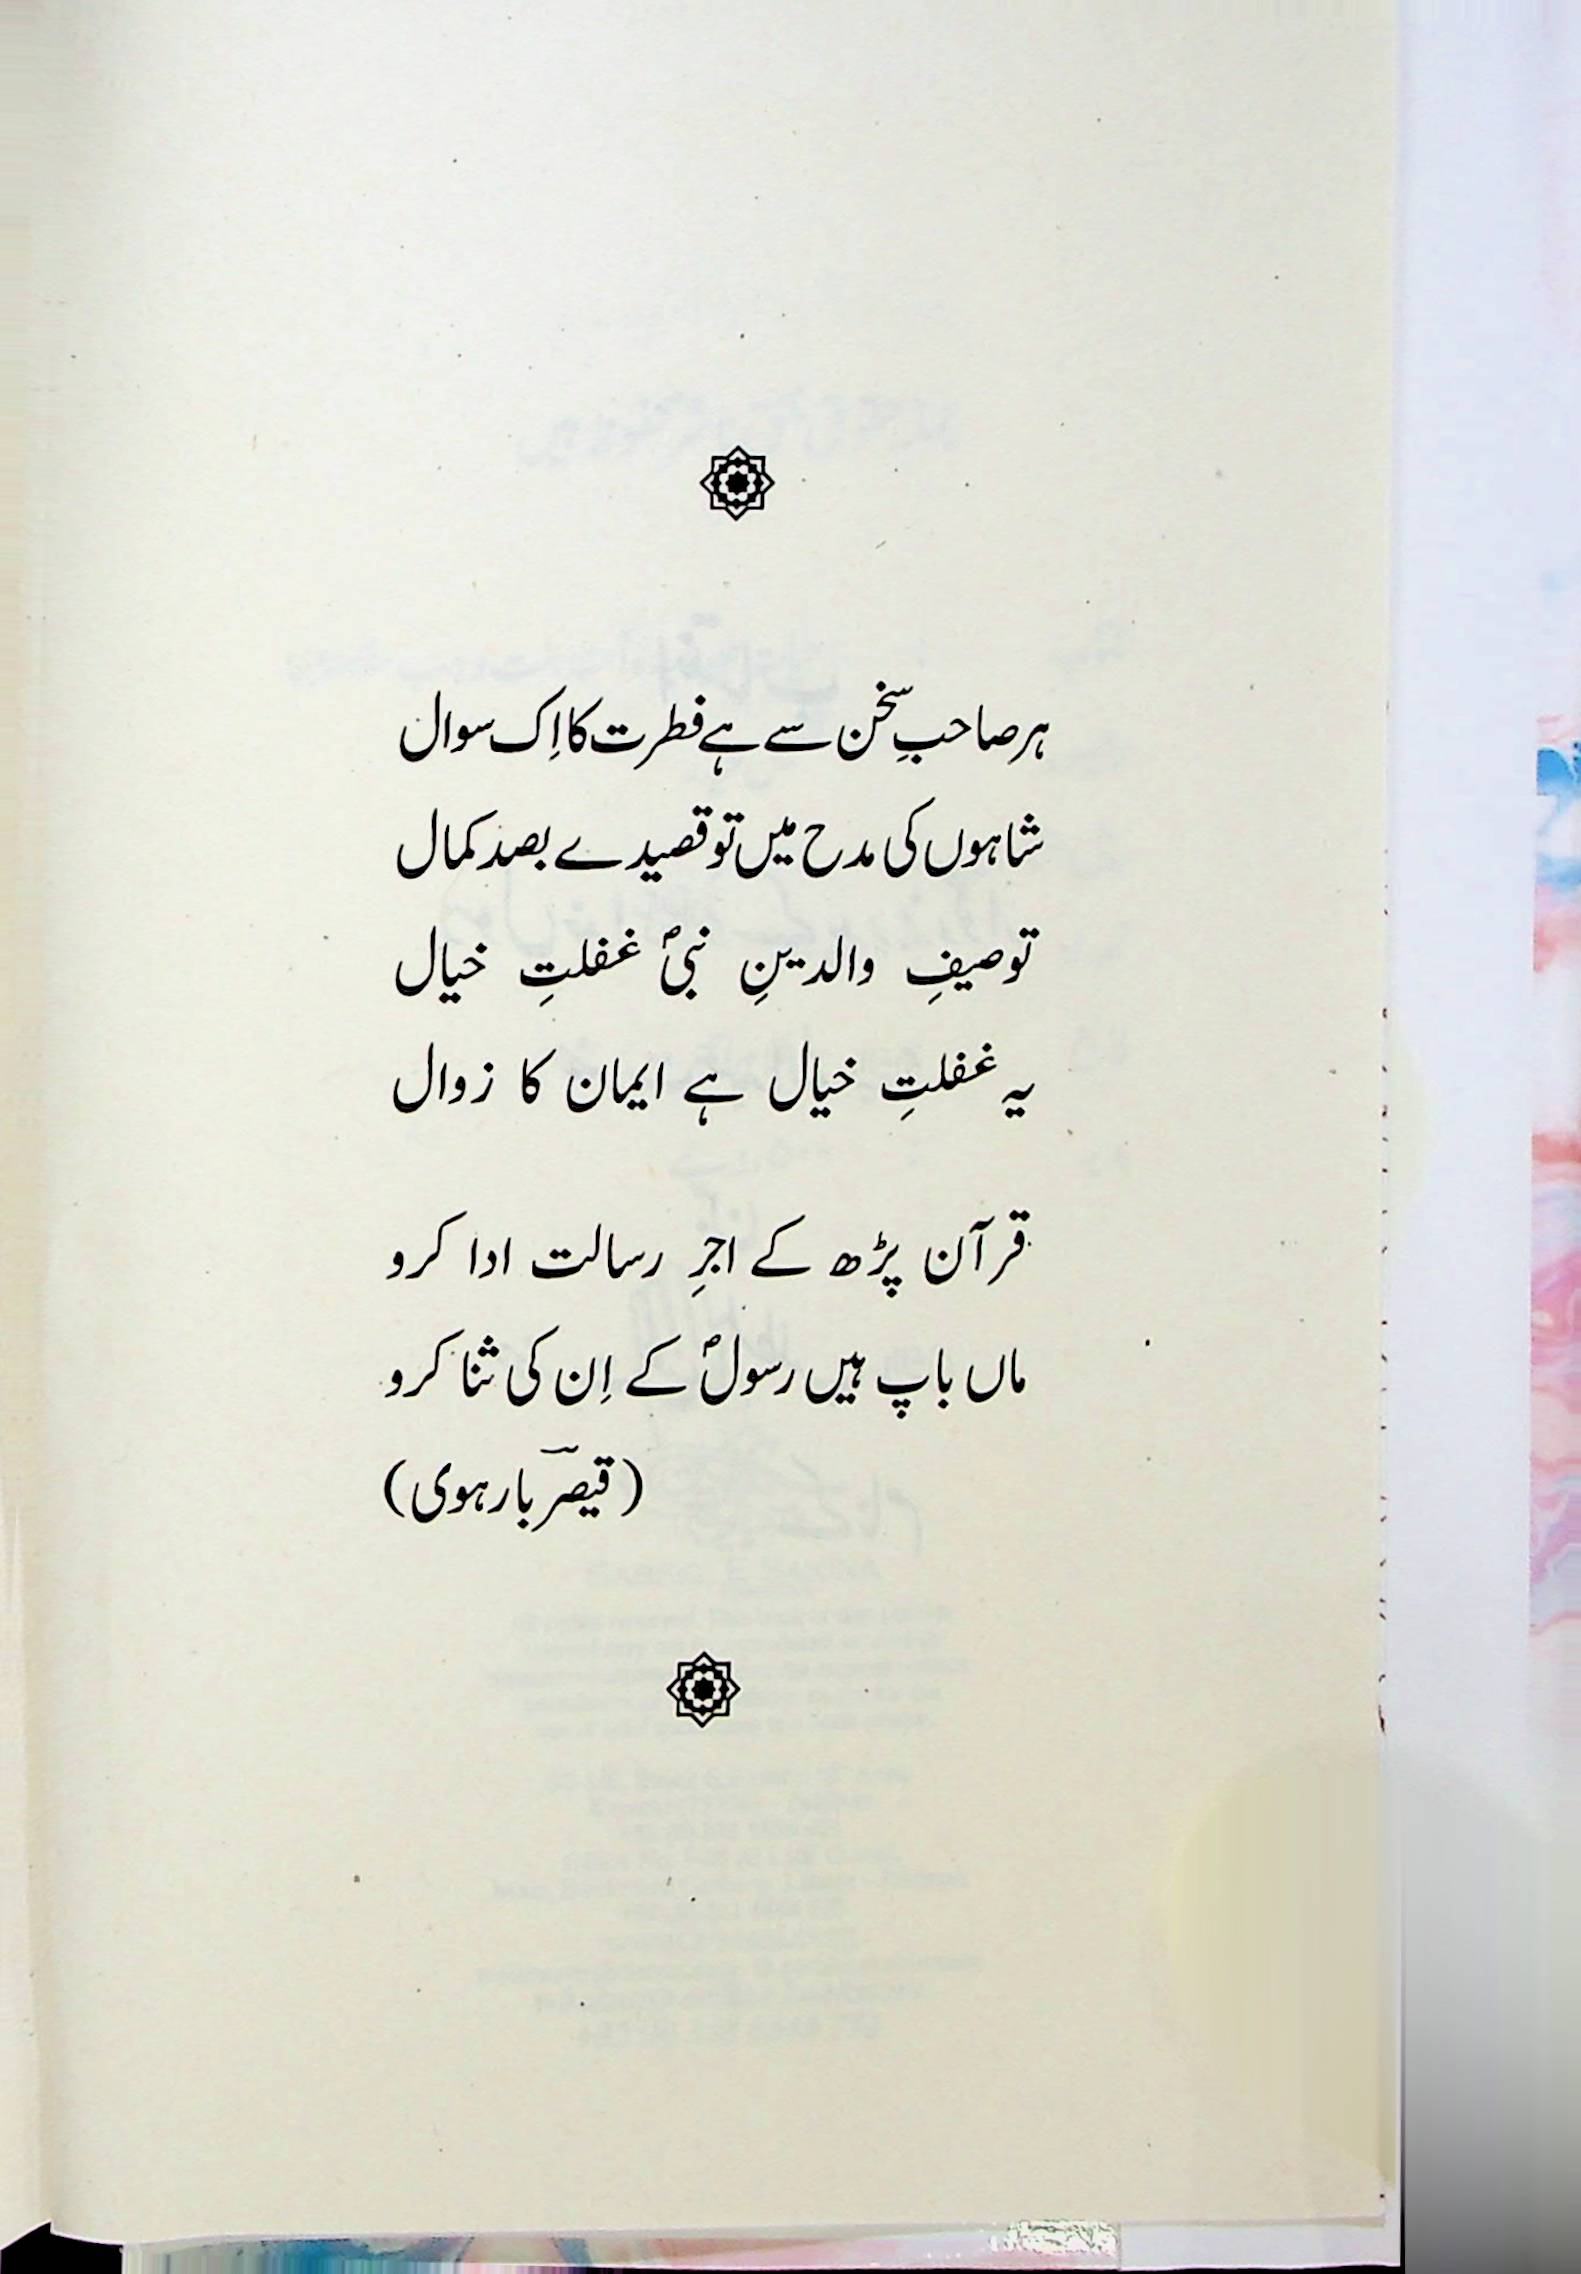 ہر صاحبِ سخن سے ہے فطرت کا اِک سوال
شاہوں کی مدح میں تو قصیدے بصد کمال
توصیفِ والدینِ نبیؐ غفلتِ خیال
یہ غفلتِ خیال ہے ایمان کا زوال
قرآن پڑھ کے اجرِ رسالت ادا کرو
ماں باپ ہیں رسولؐ کے اِن کی ثنا کرو
(قیصؔر بارہوی)